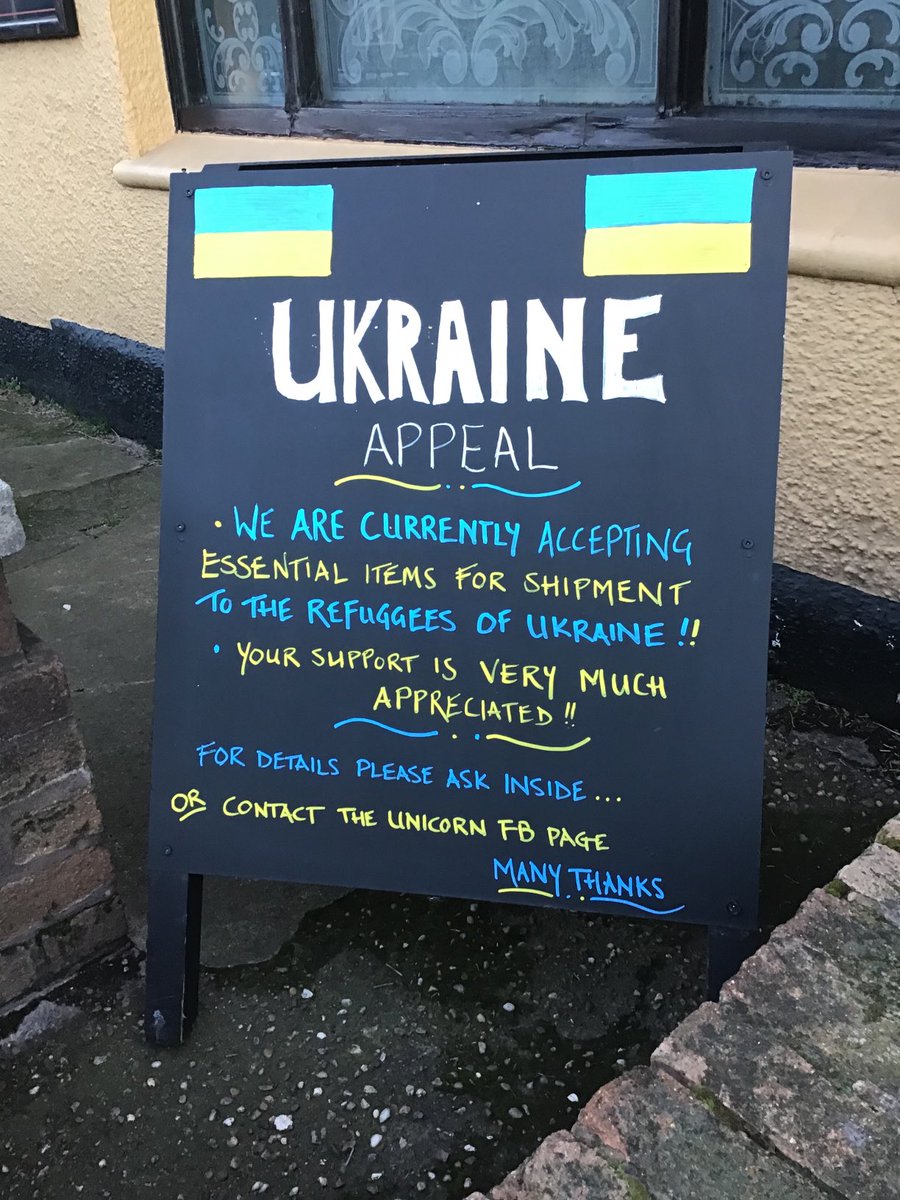 UKRAINE
APPEAL
• WE ARE CURRENTLY ACCEPTING
ESSENTIAL ITEMS FOR SHIPMENT
TO THE REFUGGEES OF UKRAINE!!
• YOUR SUPPORT IS VERY MUCH
APPRECIATED!!
FOR DETAILS PLEASE ASK INSIDE...
OR CONTACT THE UNICORN FB PAGE
MANY THANKS